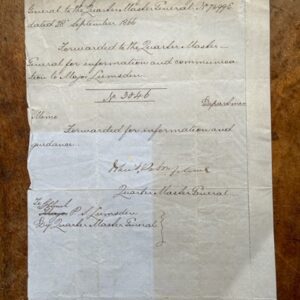 General to the Quarter Master General. No 7499E
dated 28th September 1866
Forwarded to the Quarter Master
General for information and communica
tion to Major Lumsden.
No 3846
Departmen
Memo
Forwarded for information and
guidance
Colonel
Quarter Master General
To Colonel
Major P. S. Lumsden
Dy Quarter Master General